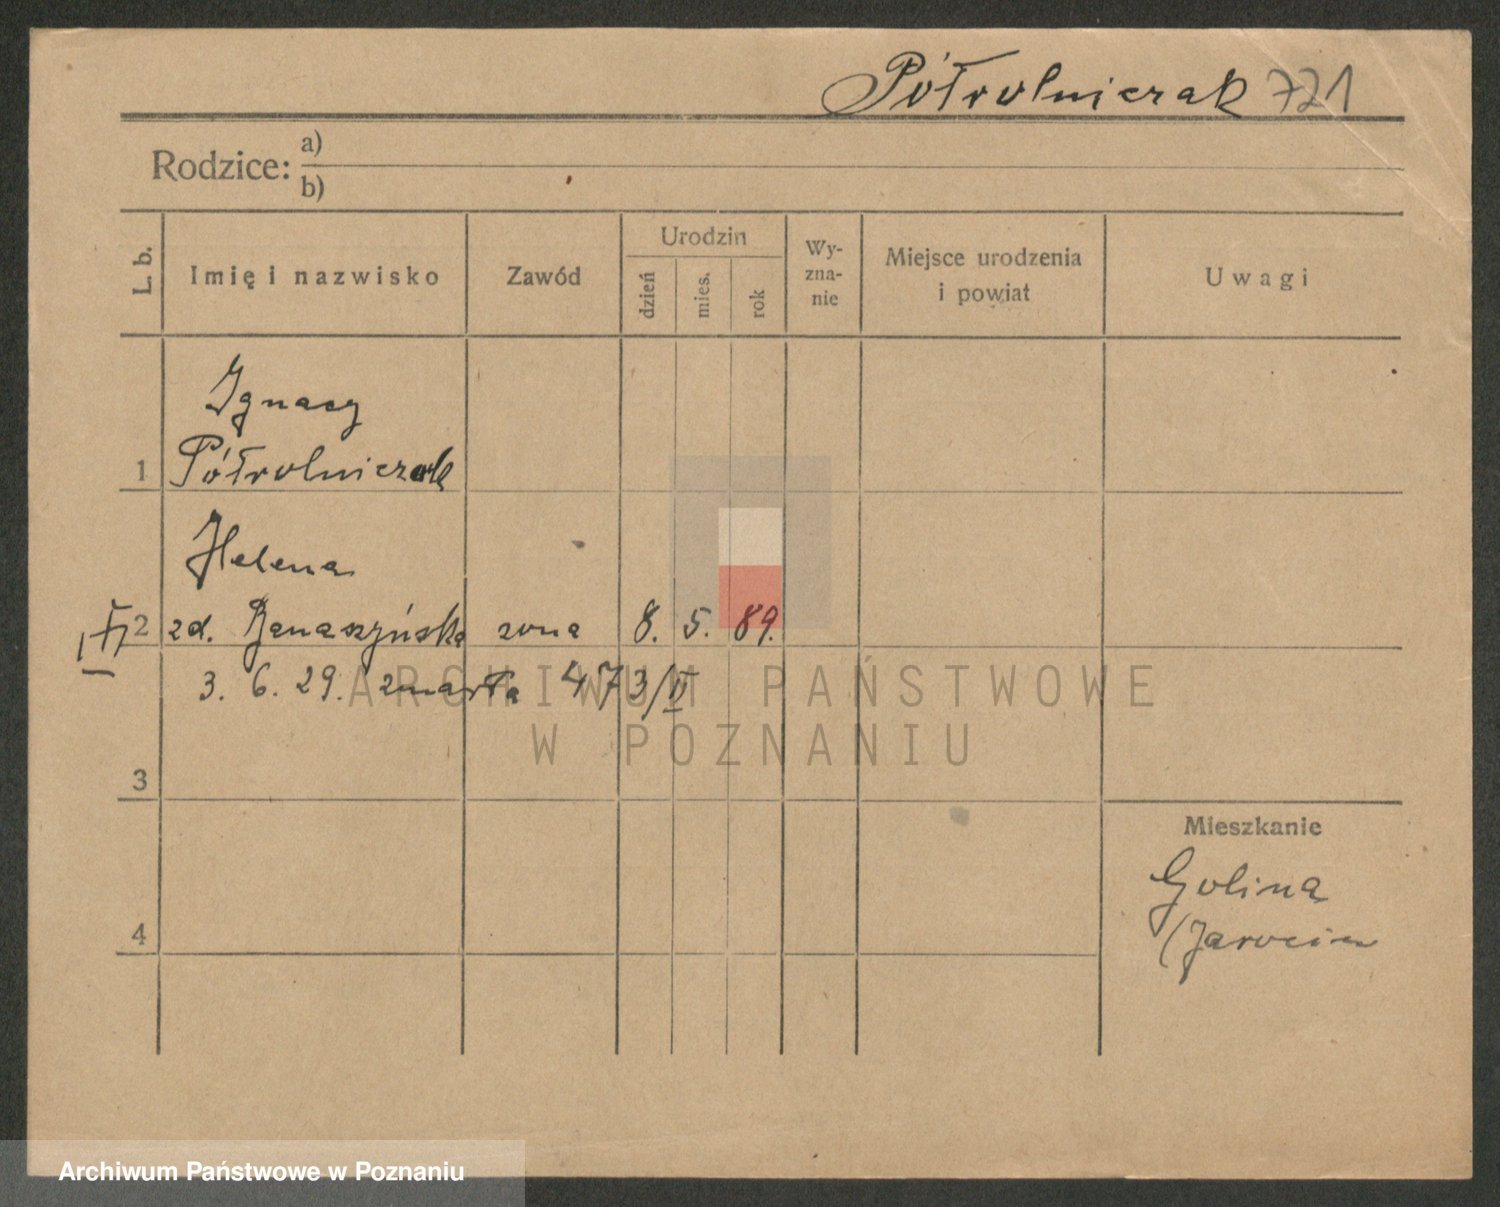 Półrolniczak 721
Rodzice: a)
b)
L. b.
Imię i nazwisko
Zawód
Urodzin
dzień
mies.
rok
Wy-
zna-
nie
Miejsce urodzenia
i powiat
Uwagi
Ignacy
1 Półrolniczak
Helena
2 zd. Banaszyńska żona 8. 5. 89.
3. 6. 29. zmarła 473/II
ARCHIWUM PAŃSTWOWE
W POZNANIU
3
Mieszkanie
Golina
(Jarocin
4
Archiwum Państwowe w Poznaniu